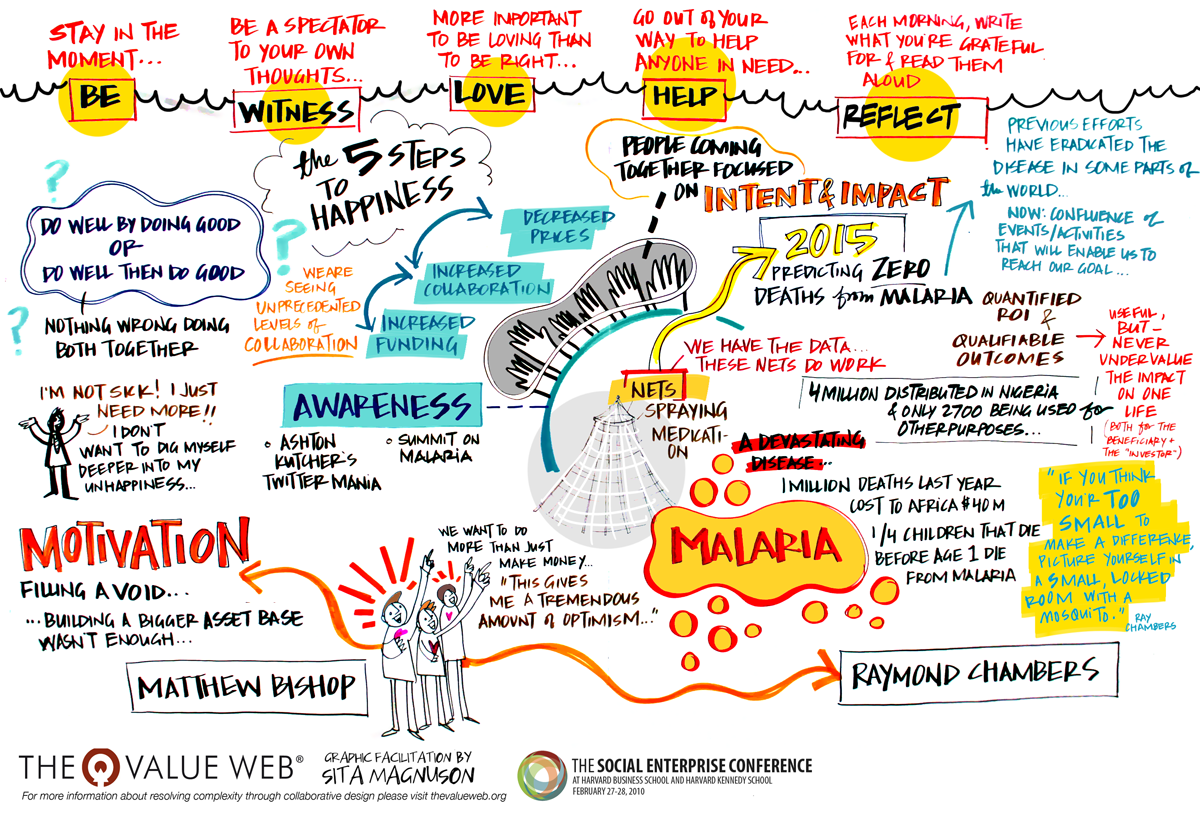 STAY IN THE
MOMENT...
BE
BE A SPECTATOR
TO YOUR OWN
THOUGHTS...
WITNESS
MORE IMPORTANT
TO BE LOVING THAN
TO BE RIGHT...
LOVE
GO OUT OF YOUR
WAY TO HELP
ANYONE IN NEED...
HELP
EACH MORNING, WRITE
WHAT YOU'RE GRATEFUL
FOR & READ THEM
ALOUD
REFLECT
the 5 STEPS
TO
HAPPINESS
?
DO WELL BY DOING GOOD
OR
DO WELL THEN DO GOOD
?
?
NOTHING WRONG DOING
BOTH TOGETHER
WE ARE
SEEING
UNPRECEDENTED
LEVELS of
COLLABORATION
DECREASED
PRICES
INCREASED
COLLABORATION
INCREASED
FUNDING
PEOPLE COMING
TOGETHER FOCUSED
ON INTENT & IMPACT
2015
PREDICTING ZERO
DEATHS from MALARIA
PREVIOUS EFFORTS
HAVE ERADICATED THE
DISEASE IN SOME PARTS of
the WORLD...
NOW: CONFLUENCE of
EVENTS/ACTIVITIES
THAT WILL ENABLE US TO
REACH OUR GOAL...
QUANTIFIED
ROI &
QUALIFIABLE
OUTCOMES
USEFUL,
BUT-
NEVER
UNDERVALUE
THE IMPACT
ON ONE
LIFE
(BOTH for THE
BENEFICIARY +
THE "INVESTOR-")
WE HAVE THE DATA...
THESE NETS DO WORK
NETS
SPRAYING
MEDICATI-
ON
4 MILLION DISTRIBUTED IN NIGERIA
& ONLY 2700 BEING USED for
OTHER PURPOSES...
I'M NOT SICK! I JUST
NEED MORE!!
I DON'T
WANT TO DIG MYSELF
DEEPER INTO MY
UNHAPPINESS...
AWARENESS
• ASHTON
KUTCHER'S
TWITTER MANIA
• SUMMIT ON
MALARIA
A DEVASTATING
DISEASE...
1 MILLION DEATHS LAST YEAR
COST TO AFRICA $40M
1/4 CHILDREN THAT DIE
BEFORE AGE 1 DIE
FROM MALARIA
MALARIA
"IF YOU THINK
YOU'R TOO
SMALL TO
MAKE A DIFFERENCE,
PICTURE YOURSELF IN
A SMALL, LOCKED
ROOM WITH A
MOSQUITO."
RAY
CHAMBERS
MOTIVATION
FILLING A VOID...
...BUILDING A BIGGER ASSET BASE
WASN'T ENOUGH...
WE WANT TO DO
MORE THAN JUST
MAKE MONEY...
"THIS GIVES
ME A TREMENDOUS
AMOUNT of OPTIMISM..."
MATTHEW BISHOP
RAYMOND CHAMBERS
THE VALUE WEB®
For more information about resolving complexity through collaborative design please visit thevalueweb.org
GRAPHIC FACILITATION BY
SITA MAGNUSON
THE SOCIAL ENTERPRISE CONFERENCE
AT HARVARD BUSINESS SCHOOL AND HARVARD KENNEDY SCHOOL
FEBRUARY 27-28, 2010